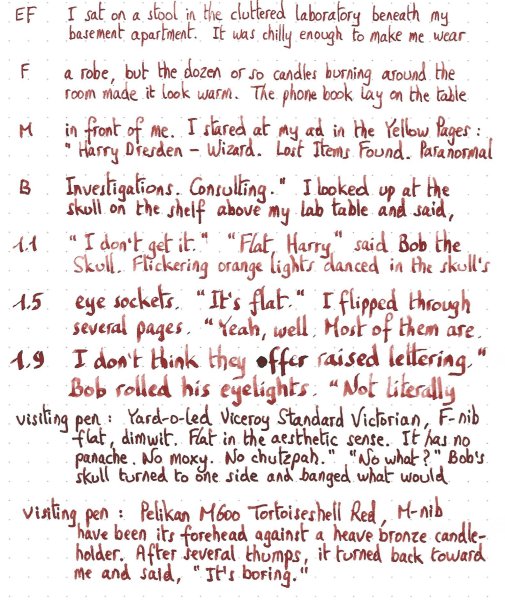 EF I sat on a stool in the cluttered laboratory beneath my
basement apartment. It was chilly enough to make me wear
F a robe, but the dozen or so candles burning around the
room made it look warm. The phone book lay on the table
M in front of me. I stared at my ad in the Yellow Pages:
"Harry Dresden – Wizard. Lost Items Found. Paranormal
B Investigations. Consulting." I looked up at the
skull on the shelf above my lab table and said,
1.1 "I don't get it." "Flat, Harry" said Bob the
Skull. Flickering orange lights danced in the skull's
1.5 eye sockets. "It's flat." I flipped through
several pages. "Yeah, well. Most of them are.
1.9 I don't think they offer raised lettering."
Bob rolled his eyelights. "Not literally
visiting pen: Yard-o-led Viceroy Standard Victorian, F-nib
flat, dimwit. Flat in the aesthetic sense. It has no
panache. No moxy. No chutzpah." "No what?" Bob's
skull turned to one side and banged what would
visiting pen: Pelikan M600 Tortoiseshell Red, M-nib
have been its forehead against a heave bronze candle-
holder. After several thumps, it turned back toward
me and said, "It's boring."